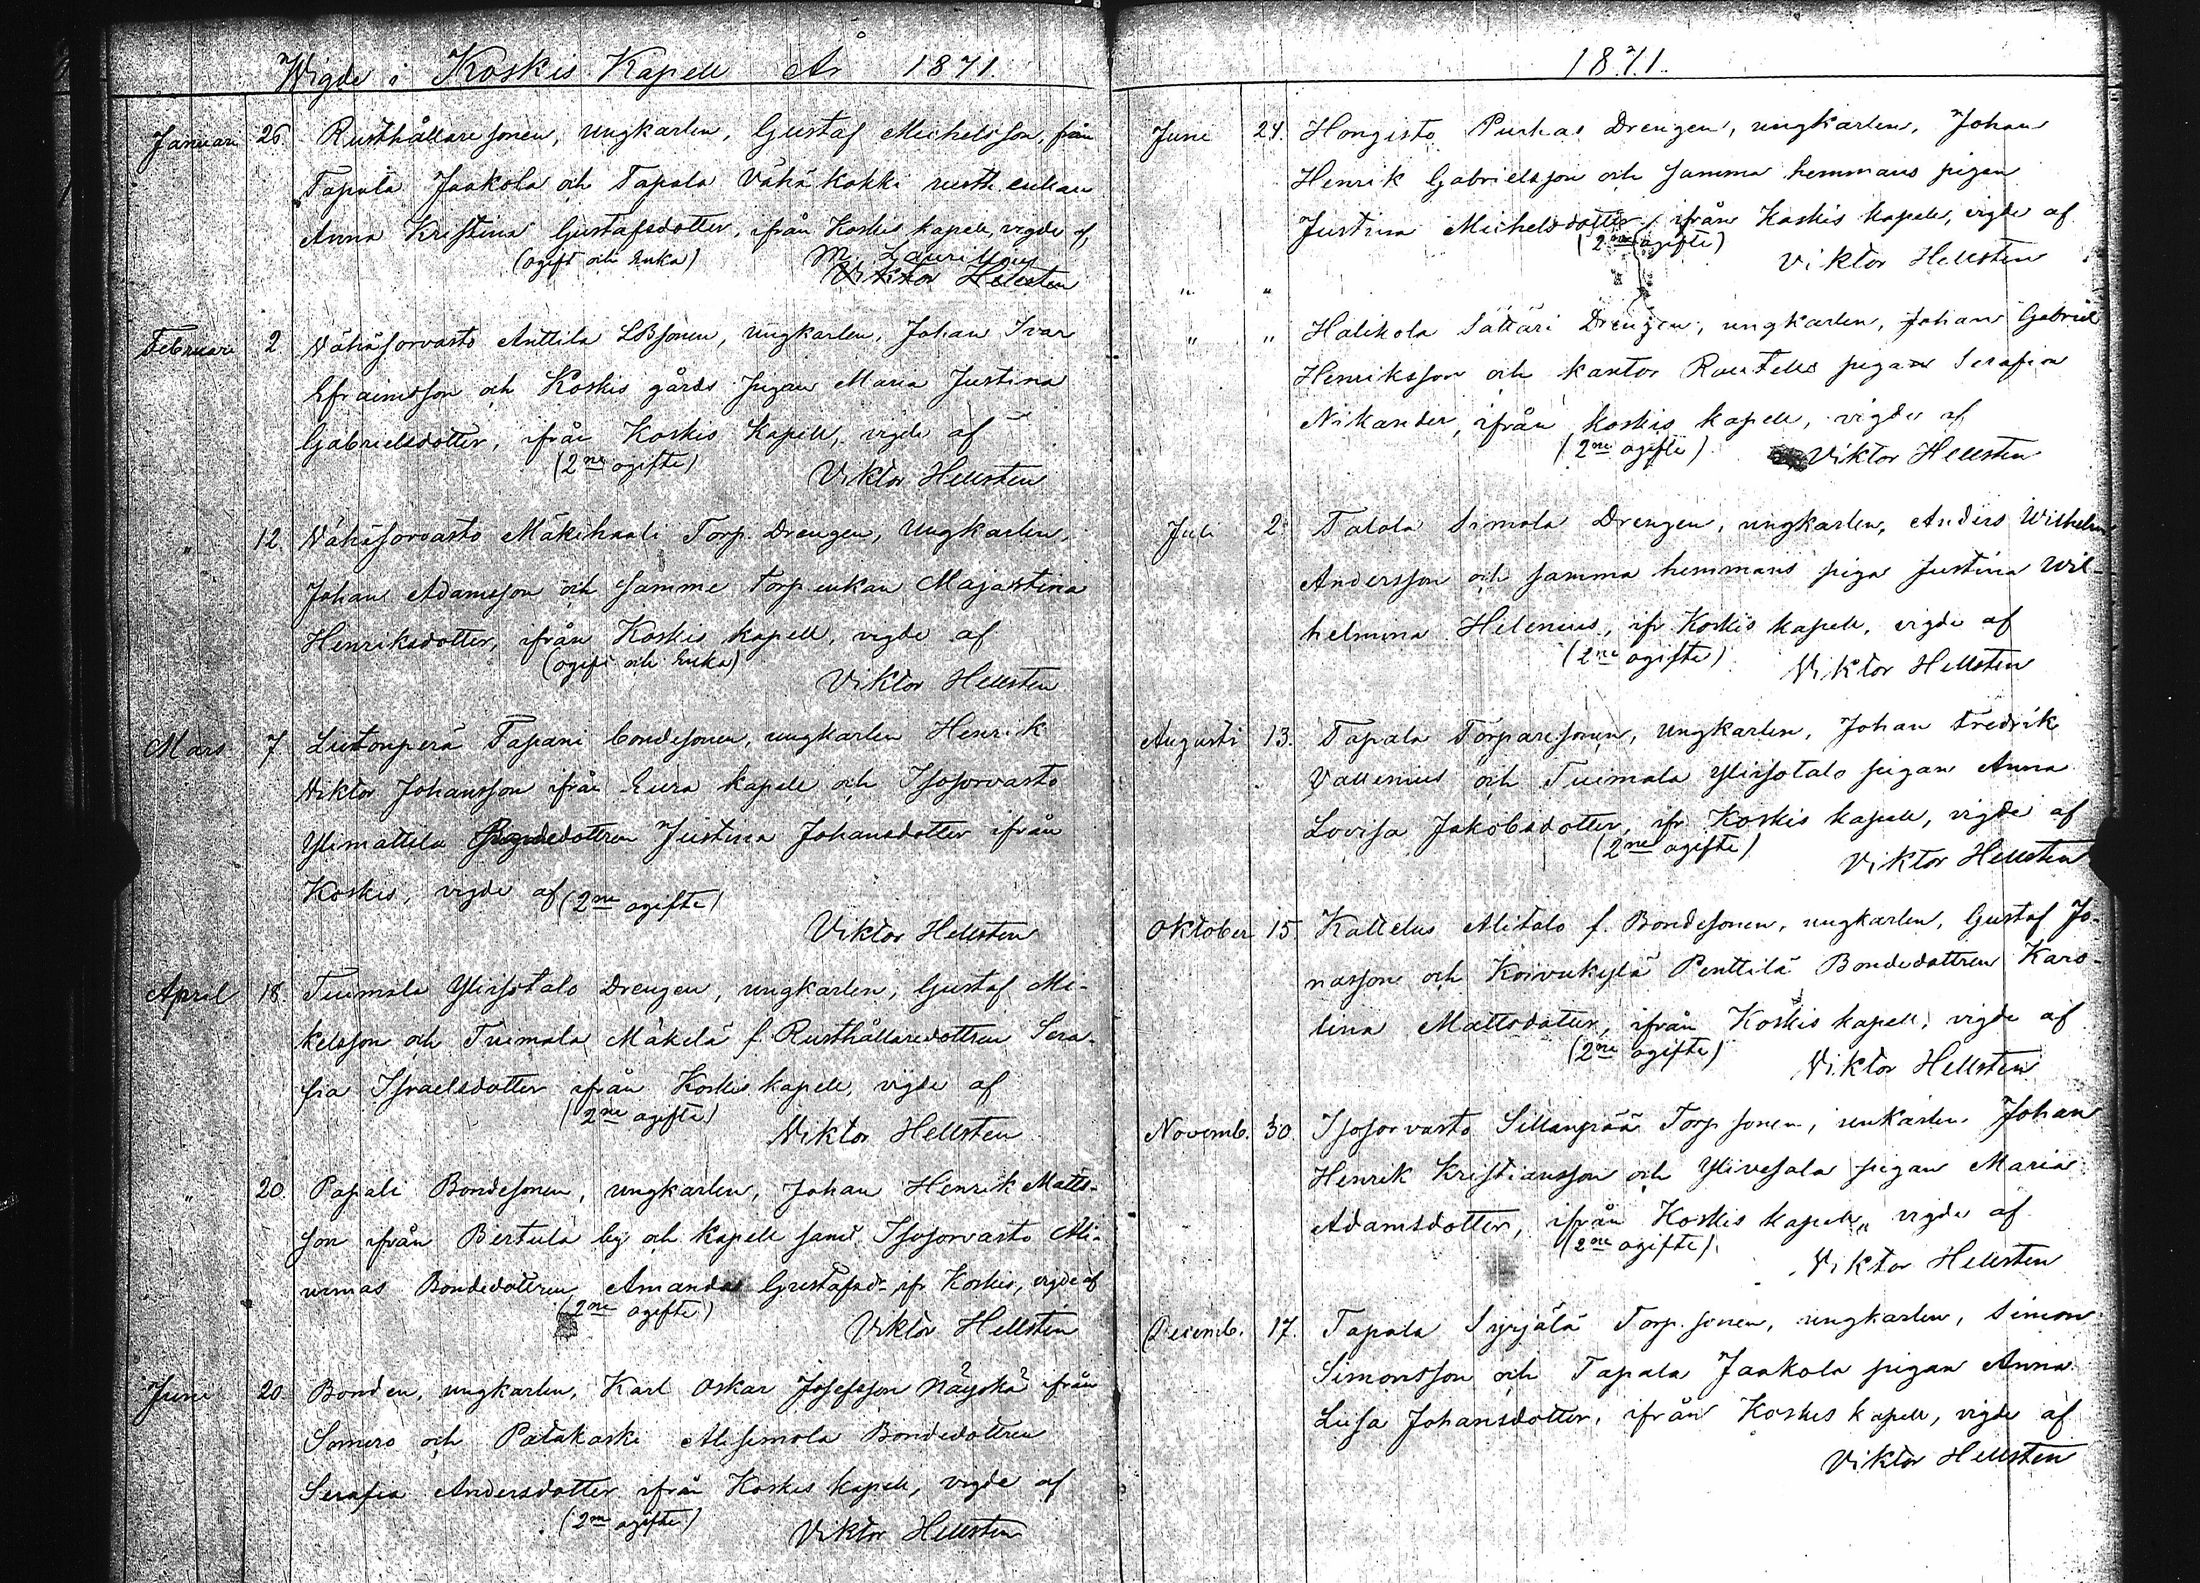 Wigde i Koskis Kapell År 1871.
Januari 26. Rusthållaresonen, ungkarlen, Gustaf Michelsson, från
Tapala Jaakola och Tapala Vähäkokki rusth. enkan
Anna Kristina Gustafsdotter, ifrån Koskis kapell, vigde af
(ogift och Enka) M. Lauri
Viktor Hellsten
Februari 2 Vähäsorvasto Anttila LBsonen, ungkarlen, Johan Ivar
Efraimsson och Koskis gårds pigan Maria Justina
Gabrielsdotter, ifrån Koskis Kapell, vigde af
(2ne ogifte) Viktor Hellsten
" 12. Vähäsorvasto Mäkihaali Torp. Drengen, Ungkarlen,
Johan Adamsson och Samme torp enkan Majastina
Henriksdotter, ifrån Koskis kapell, vigde af
(ogift och Enka)
Viktor Hellsten
Mars 7 Liitonperä Tapani bondesonen, ungkarlen Henrik
Viktor Johansson ifrån Eura kapell och Isosorvasto
Ylimattila Bondedottren Justina Johansdotter ifrån
Koskis, vigde af (2ne ogifte)
Viktor Hellsten
April 18. Tuimala Ylisotalo Drengen, ungkarlen, Gustaf Mi-
kelsson och Tuimala Mäkelä f. Rusthållaredottren Sera-
fia Israelsdotter ifrån Koskis kapell, vigde af
(2ne ogifte)
Viktor Hellsten
" 20. Papali Bondesonen, ungkarlen, Johan Henrik Matts-
son ifrån Bertula by och kapell samt Isosorvasto
Bondedottren Amanda Gustafsdr. ifr Koskis, vigde af
(2ne ogifte)
Viktor Hellsten
Juni 20 Bonden, ungkarlen, Karl Oskar Josefsson Näyokä ifrån
Somero och Patakoski Alisimola Bondedottren
Serafia Andersdotter ifrån Koskis kapell, vigde af
(2ne ogifte)
Viktor Hellsten
1871.
Juni 24. Hongisto Purhas Drengen, ungkarlen, Johan
Henrik Gabrielsson och samma hemmans pigan
Justina Michelsdotter, ifrån Koskis kapell, vigde af
(2ne ogifte)
Viktor Hellsten
" "
" " Halikola Sättäri Drengen, ungkarlen, Johan Gabriel
Henriksson och kantor Rautells pigan Serafia
Nikander, ifrån Koskis kapell, vigde af
(2ne ogifte) Viktor Hellsten
Juli 2 Talola Simola Drengen, ungkarlen, Anders Wilhelm
Andersson och samma hemmans piga Justina Wil-
helmina Helenius, ifr Koskis kapell, vigde af
(2ne ogifte)
Viktor Hellsten
Augusti 13. Tapala Torparesonen, ungkarlen, Johan Fredrik
Vallenius och Tuimala Ylisotalo pigan Anna
Lovisa Jakobsdotter, ifr Koskis kapell, vigde af
(2ne ogifte)
Viktor Hellsten
Oktober 15. Kattelus Alitalo f. Bondesonen, ungkarlen, Gustaf Jo-
nasson och Koivukylä Penttilä Bondedottren Karo-
lina Mattsdotter, ifrån Koskis kapell, vigde af
(2ne ogifte)
Viktor Hellsten
Novemb. 30. Isosorvasto Sillanpää Torp sonen, unkarlen Johan
Henrik Kristiansson och Ylivesala pigan Maria
Adamsdotter, ifrån Koskis kapell, vigde af
(2ne ogifte)
Viktor Hellsten
Decemb. 17. Tapala Syrjälä Torp. sonen, ungkarlen, Simon
Simonsson och Tapala Jaakola pigan Anna
Lisa Johansdotter, ifrån Koskis kapell, vigde af
Viktor Hellsten